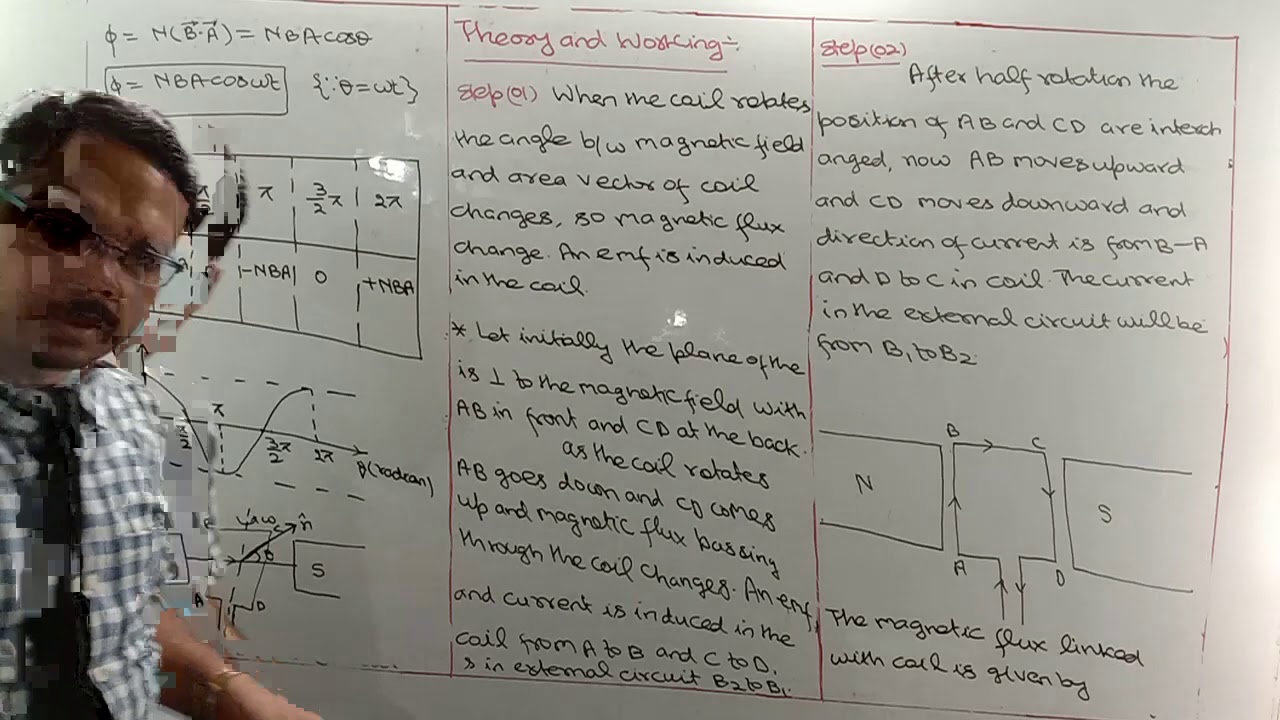 ϕ = N(B⃗·A⃗) = NBAcosθ
ϕ = NBAcosωt {∵θ=ωt}
π 3/2 π 2π
-NBA 0 +NBA
π
π/2 3π/2 2π θ(radian)
n̂
θ
S
A D
Theory and Working:-
Step(01) When the coil rotates
the angle b/w magnetic field
and area vector of coil
changes, so magnetic flux
change. An emf is induced
in the coil
* Let initially the plane of the
is ⊥ to the magnetic field with
AB in front and CD at the back.
as the coil rotates
AB goes down and CD comes
up and magnetic flux passing
through the coil changes. An emf
and current is induced in the
coil from A to B and C to D.
in external circuit B2 to B1.
Step(02)
After half rotation the
position of AB and CD are interch
anged, now AB moves upward
and CD moves downward and
direction of current is from B-A
and D to C in coil. The current
in the external circuit will be
from B1 to B2.
B C
N S
A D
The magnetic flux linked
with coil is given by